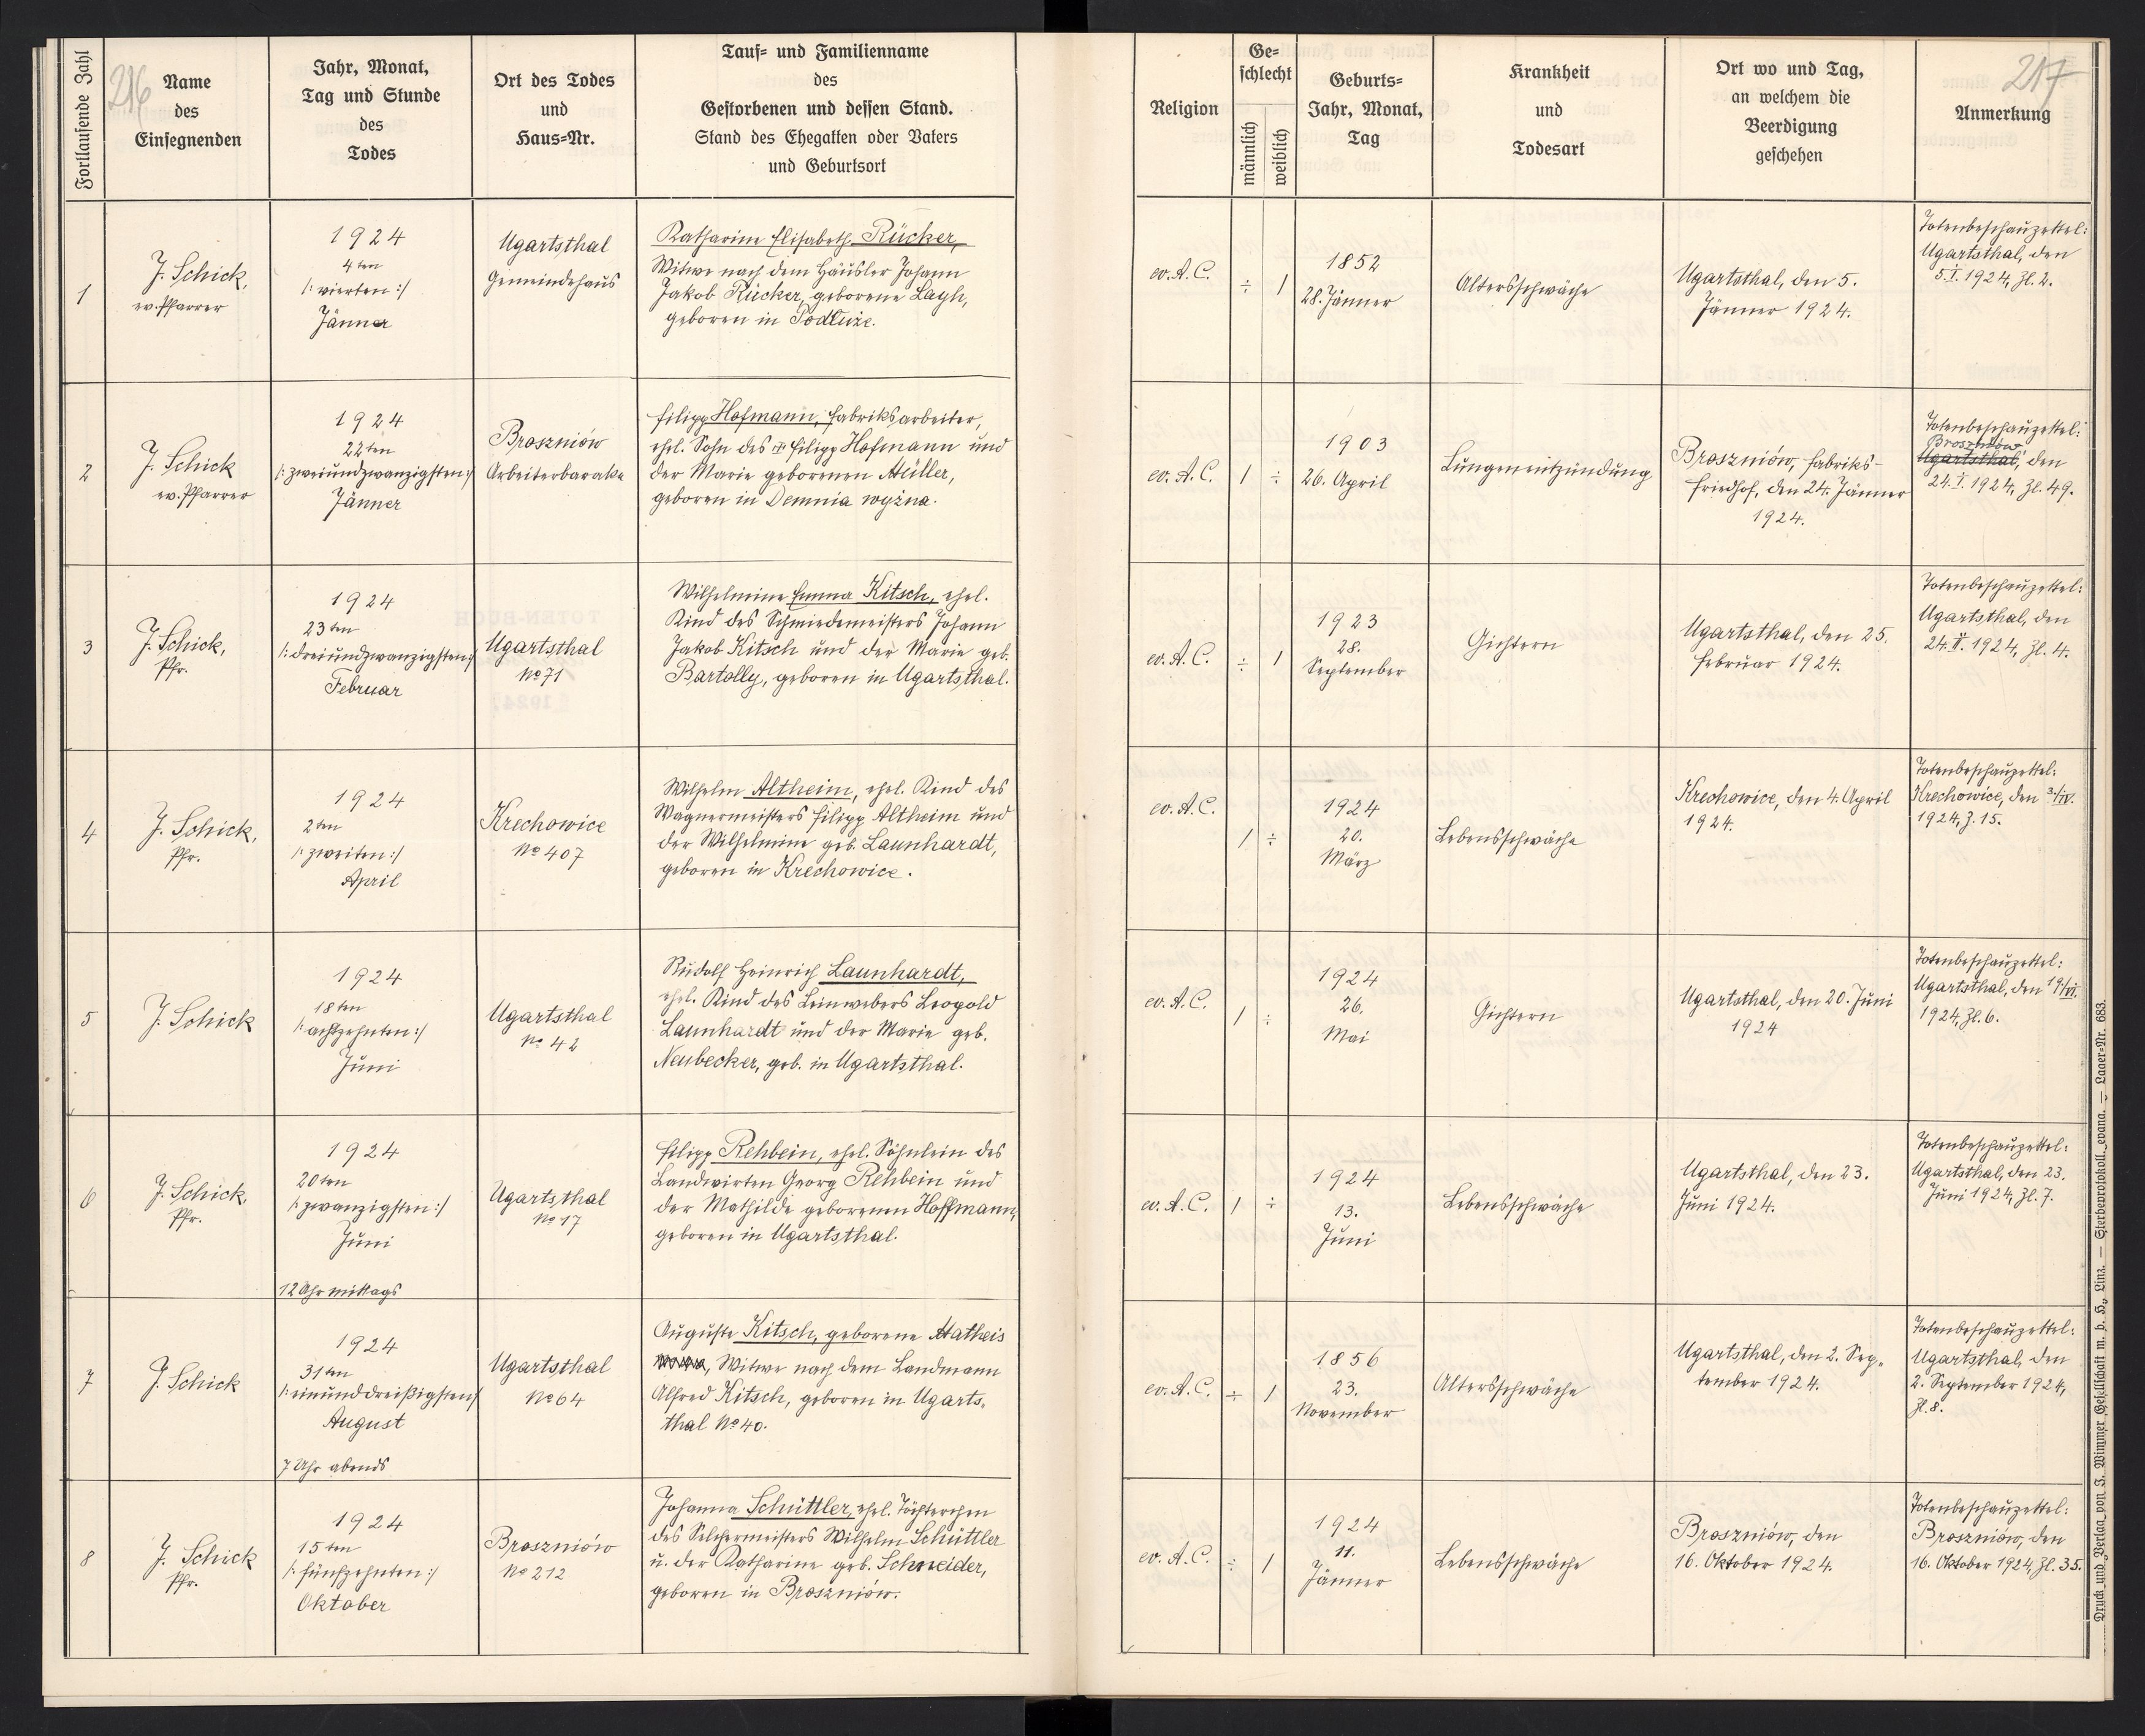 216
Fortlaufende Zahl
Name
des
Einsegnenden
Jahr, Monat,
Tag und Stunde
des
Todes
Ort des Todes
und
Haus=Nr.
Tauf= und Familienname
des
Gestorbenen und dessen Stand.
Stand des Ehegatten oder Vaters
und Geburtsort
Religion
Ge=
schlecht
männlich
weiblich
Geburts=
Jahr, Monat,
Tag
Krankheit
und
Todesart
Ort wo und Tag,
an welchem die
Beerdigung
geschehen
217
Anmerkung
1
J. Schick,
ev. Pfarrer
1924
4ten
/: vierten :/
Jänner
Ugartsthal
Gemeindehaus
Katharine Elisabeth Rücker,
Witwe nach dem Häusler Johann
Jakob Rücker, geborene Lagh,
geboren in Podluże.
ev. A. C.
÷
1
1852
28. Jänner
Altersschwäche
Ugartsthal, den 5.
Jänner 1924.
Totenbeschauzettel:
Ugartsthal, den
5. I. 1924, Zl. 2.
2
J. Schick
ev. Pfarrer
1924
22ten
/: zweiundzwanzigsten :/
Jänner
Broszniów
Arbeiterbarake
Filipp Hofmann, Fabriksarbeiter,
ehel. Sohn des Filipp Hofmann und
der Marie geborenen Müller,
geboren in Demnia wyżna.
ev. A. C.
1
÷
1903
26. April
Lungenentzündung
Broszniów, Fabriks-
friedhof, den 24. Jänner
1924.
Totenbeschauzettel:
Broszniów
Ugartsthal, den
24. I. 1924, Zl. 49.
3
J. Schick,
Pfr.
1924
23ten
/: dreiundzwanzigsten :/
Februar
Ugartsthal
No 71
Wilhelmine Emma Kitsch, ehel.
Kind des Schmiedemeisters Johann
Jakob Kitsch und der Marie geb.
Bartolly, geboren in Ugartsthal.
ev. A. C.
÷
1
1923
28.
September
Gichtern
Ugartsthal, den 25.
Februar 1924.
Totenbeschauzettel:
Ugartsthal, den
24. II. 1924, Zl. 4.
4
J. Schick,
Pfr.
1924
2ten
/: zweiten :/
April
Krechowice
No 407
Wilhelm Altheim, ehel. Kind des
Wagnermeisters Filipp Altheim und
der Wilhelmine geb. Launhardt,
geboren in Krechowice.
ev. A. C.
1
÷
1924
20.
März
Lebensschwäche
Krechowice, den 4. April
1924.
Totenbeschauzettel:
Krechowice, den 3/IV.
1924, Z. 15.
5
J. Schick
1924
18ten
/: achtzehnten :/
Juni
Ugartsthal
No 42
Rudolf Heinrich Launhardt,
ehel. Kind des Leinwebers Leopold
Launhardt und der Marie geb.
Neubecker, geb. in Ugartsthal.
ev. A. C.
1
÷
1924
26.
Mai
Gichtern
Ugartsthal, den 20. Juni
1924
Totenbeschauzettel:
Ugartsthal, den 19/VI.
1924, Zl. 6.
6
J. Schick,
Pfr.
1924
20ten
/: zwanzigsten :/
Juni
12 Uhr mittags
Ugartsthal
No 17
Filipp Rehbein, ehel. Söhnlein des
Landwirten Georg Rehbein und
der Mathilde geborenen Hoffmann,
geboren in Ugartsthal.
ev. A. C.
1
÷
1924
13.
Juni
Lebensschwäche
Ugartsthal, den 23.
Juni 1924.
Totenbeschauzettel:
Ugartsthal, den 23.
Juni 1924, Zl. 7.
7
J. Schick
1924
31ten
/: einunddreißigsten :/
August
7 Uhr abends
Ugartsthal
No 64
Auguste Kitsch, geborene Matheis
Witwe nach dem Landmann
Alfred Kitsch, geboren in Ugarts-
thal No 40.
ev. A. C.
÷
1
1856
23.
November
Altersschwäche
Ugartsthal, den 2. Sep-
tember 1924.
Totenbeschauzettel:
Ugartsthal, den
2. September 1924,
Zl. 8.
8
J. Schick
Pfr.
1924
15ten
/: fünfzehnten :/
Oktober
Broszniów
No 212
Johanna Schüttler, ehel. Töchterchen
des Selchermeisters Wilhelm Schüttler
u. der Katharine geb. Schneider,
geboren in Broszniów.
ev. A. C.
÷
1
1924
11.
Jänner
Lebensschwäche
Broszniów, den
16. Oktober 1924.
Totenbeschauzettel:
Broszniów, den
16. Oktober 1924, Zl. 35.
Druck und Verlag von J. Wimmer Gesellschaft m. b. H., Linz. — Sterbeprotokoll, evang. — Lager=Nr. 683.